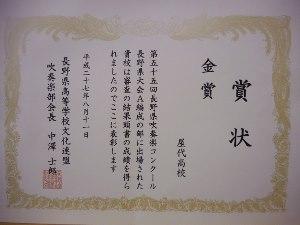 賞状
金賞
屋代高校
第五十五回長野県吹奏楽コンクール
長野県大会A編成の部に出場された
貴校は審査の結果頭書の成績を得ら
れましたのでここに表彰します
平成二十七年八月十一日
長野県高等学校文化連盟
吹奏楽部会長 中澤士郎